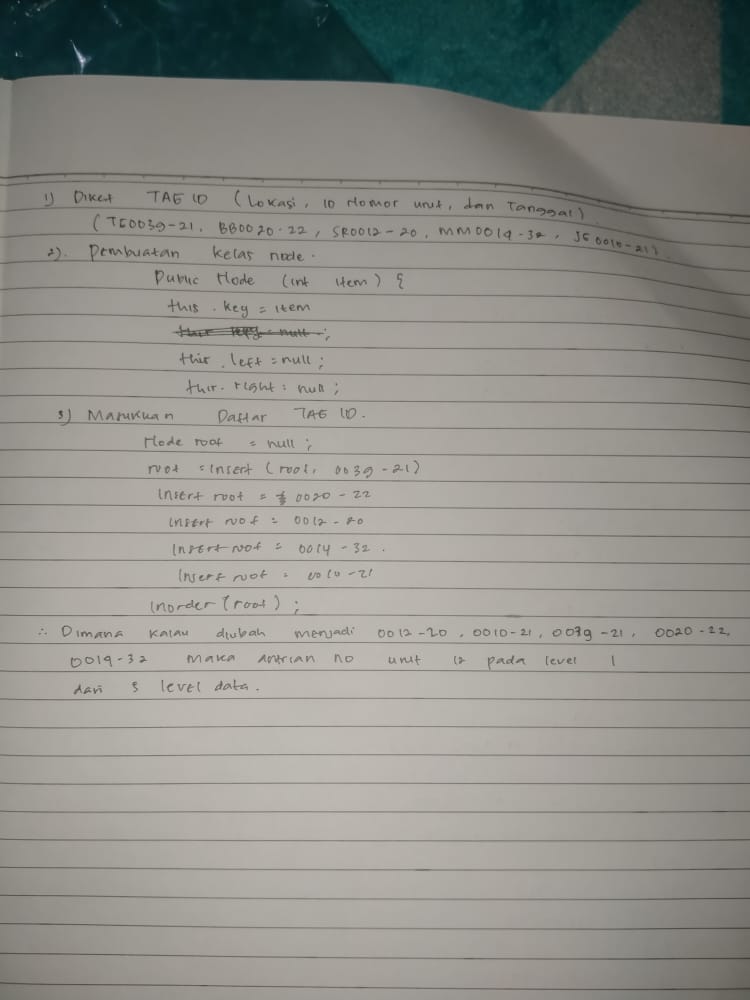 1) Diket TAG ID (Lokasi, ID Nomor unit, dan Tanggal)
(TG0039-21, BB0020-22, SR0012-20, MM0014-32, JG0010-21)
2). Pembuatan kelas node.
Public Node (int item) {
this.key = item
this.left = null;
this.right = null;
3) Masukkan Daftar TAG ID.
Node root = null;
root = insert (root, 0039-21)
Insert root = 0020-22
Insert root = 0012-20
Insert root = 0014-32.
Insert root = 0010-21
Inorder (root);
∴ Dimana kalau diubah menjadi 0012-20, 0010-21, 0039-21, 0020-22,
0014-32 maka antrian no unit 12 pada level 1
dari 5 level data.